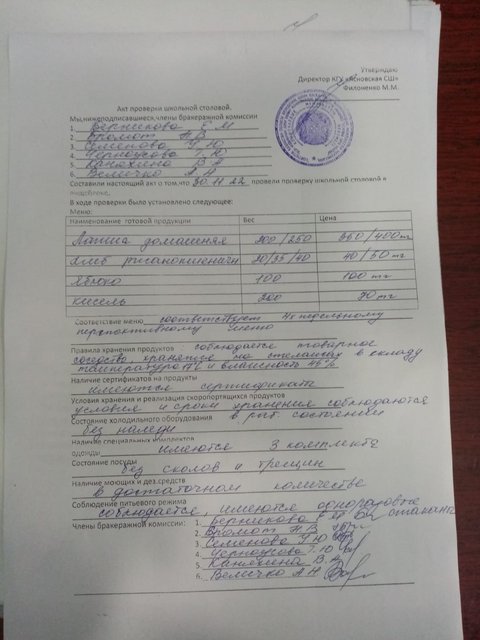 Утверждаю
Директор КГУ «Ясновская СШ»
Филоненко М.М.
Акт проверки школьной столовой.
Мы,нижеподписавшиеся,члены бракеражной комиссии
1. Верникова Г М
2. Бромот Н В
3. Семенова У Ю
4. Черноусова Т. Ю
5. Каняхина В А
6. Величко А Н
Составили настоящий акт о том,что 30.11.22 провели проверку школьной столовой и
пищеблока.
В ходе проверки было установлено следующее:
Меню:
Наименование готовой продукции Вес Цена
Лапша домашняя 200/250 360/400тг
Хлеб ржанопшеничн 20/35/40 40/50тг
Яблоко 100 100 тг
кисель 200 70тг
Соответствие меню соответствует 4х недельному
перспективному меню
Правила хранения продуктов соблюдается товарное
соседство, хранение на стелажах в складу
температура и влажность 45%
Наличие сертификатов на продукты
имеются сертификаты
Условия хранения и реализация скоропортящихся продуктов
условия и сроки хранения соблюдаются
Состояние холодильного оборудования в раб. состоянии
без наледи
Наличие специальных комплектов
одежды имеются 3 комплекта
Состояние посуды
без сколов и трещин
Наличие моющих и дез.средств
в достаточном количестве
Соблюдение питьевого режима
соблюдается, имеются одноразовые
стаканы
Члены бракеражной комиссии: 1. Верникова Г М
2. Бромот Н В
3. Семенова У Ю
4. Черноусова Т. Ю
5. Каняхина В А
6. Величко А Н